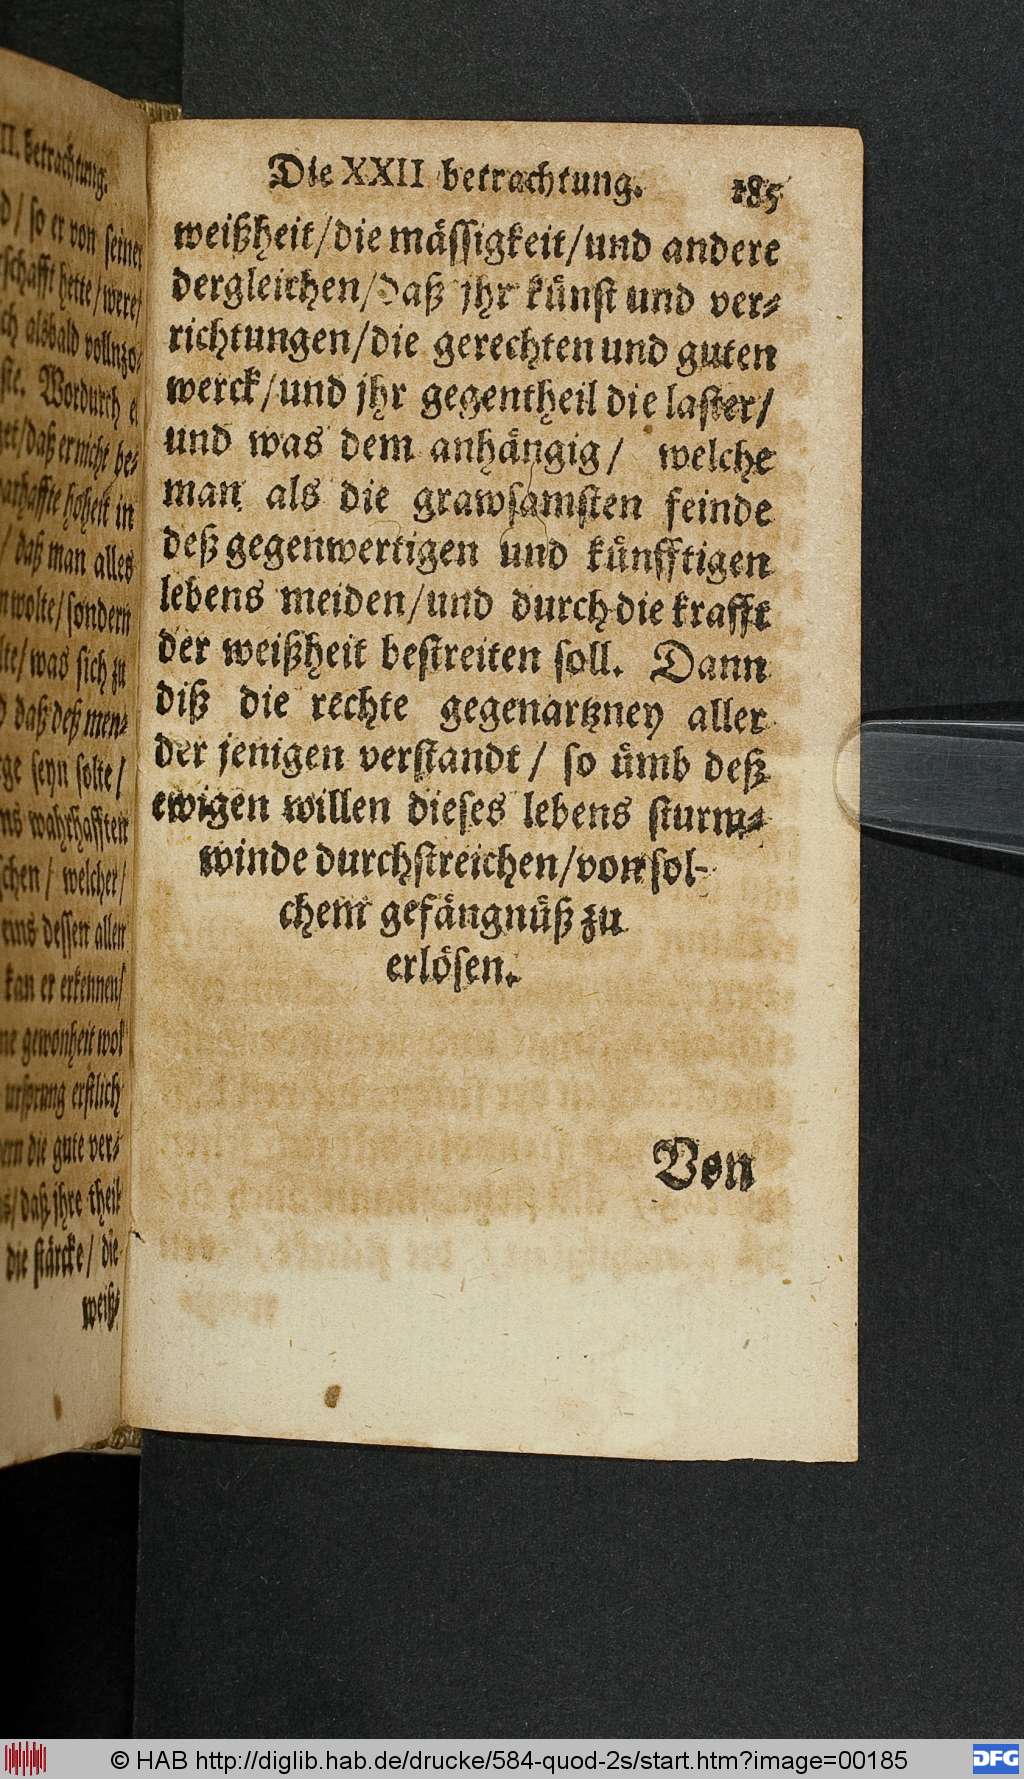 II. betrachtung.
d / so er von seiner
schafft hette / were /
ch alsbald vollnzo-
ste. Wordurch e
et / daß er nicht be-
arhaffte hoheit in
/ daß man alles
nwolte / sondern
lte / was sich zu
d daß deß men-
rge seyn solte /
ns wahrhafften
schen / welcher /
uns dessen allen
kan er erkennen /
ne gewonheit wol
ursprung erstlich
ern die gute ver-
s / daß jhre theil
die stärcke / die
weiß-
Die XXII betrachtung. 185
weißheit / die mässigkeit / und andere
dergleichen / daß jhr künst und ver-
richtungen / die gerechten und guten
werck / und jhr gegentheil die laster /
und was dem anhängig / welche
man als die grawsamsten feinde
deß gegenwertigen und künfftigen
lebens meiden / und durch die krafft
der weißheit bestreiten soll. Dann
diß die rechte gegenartzney aller
der jenigen verstandt / so ümb deß
ewigen willen dieses lebens sturm-
winde durchstreichen / von sol-
chem gefängnüß zu
erlösen.
Von
© HAB http://diglib.hab.de/drucke/584-quod-2s/start.htm?image=00185
DFG